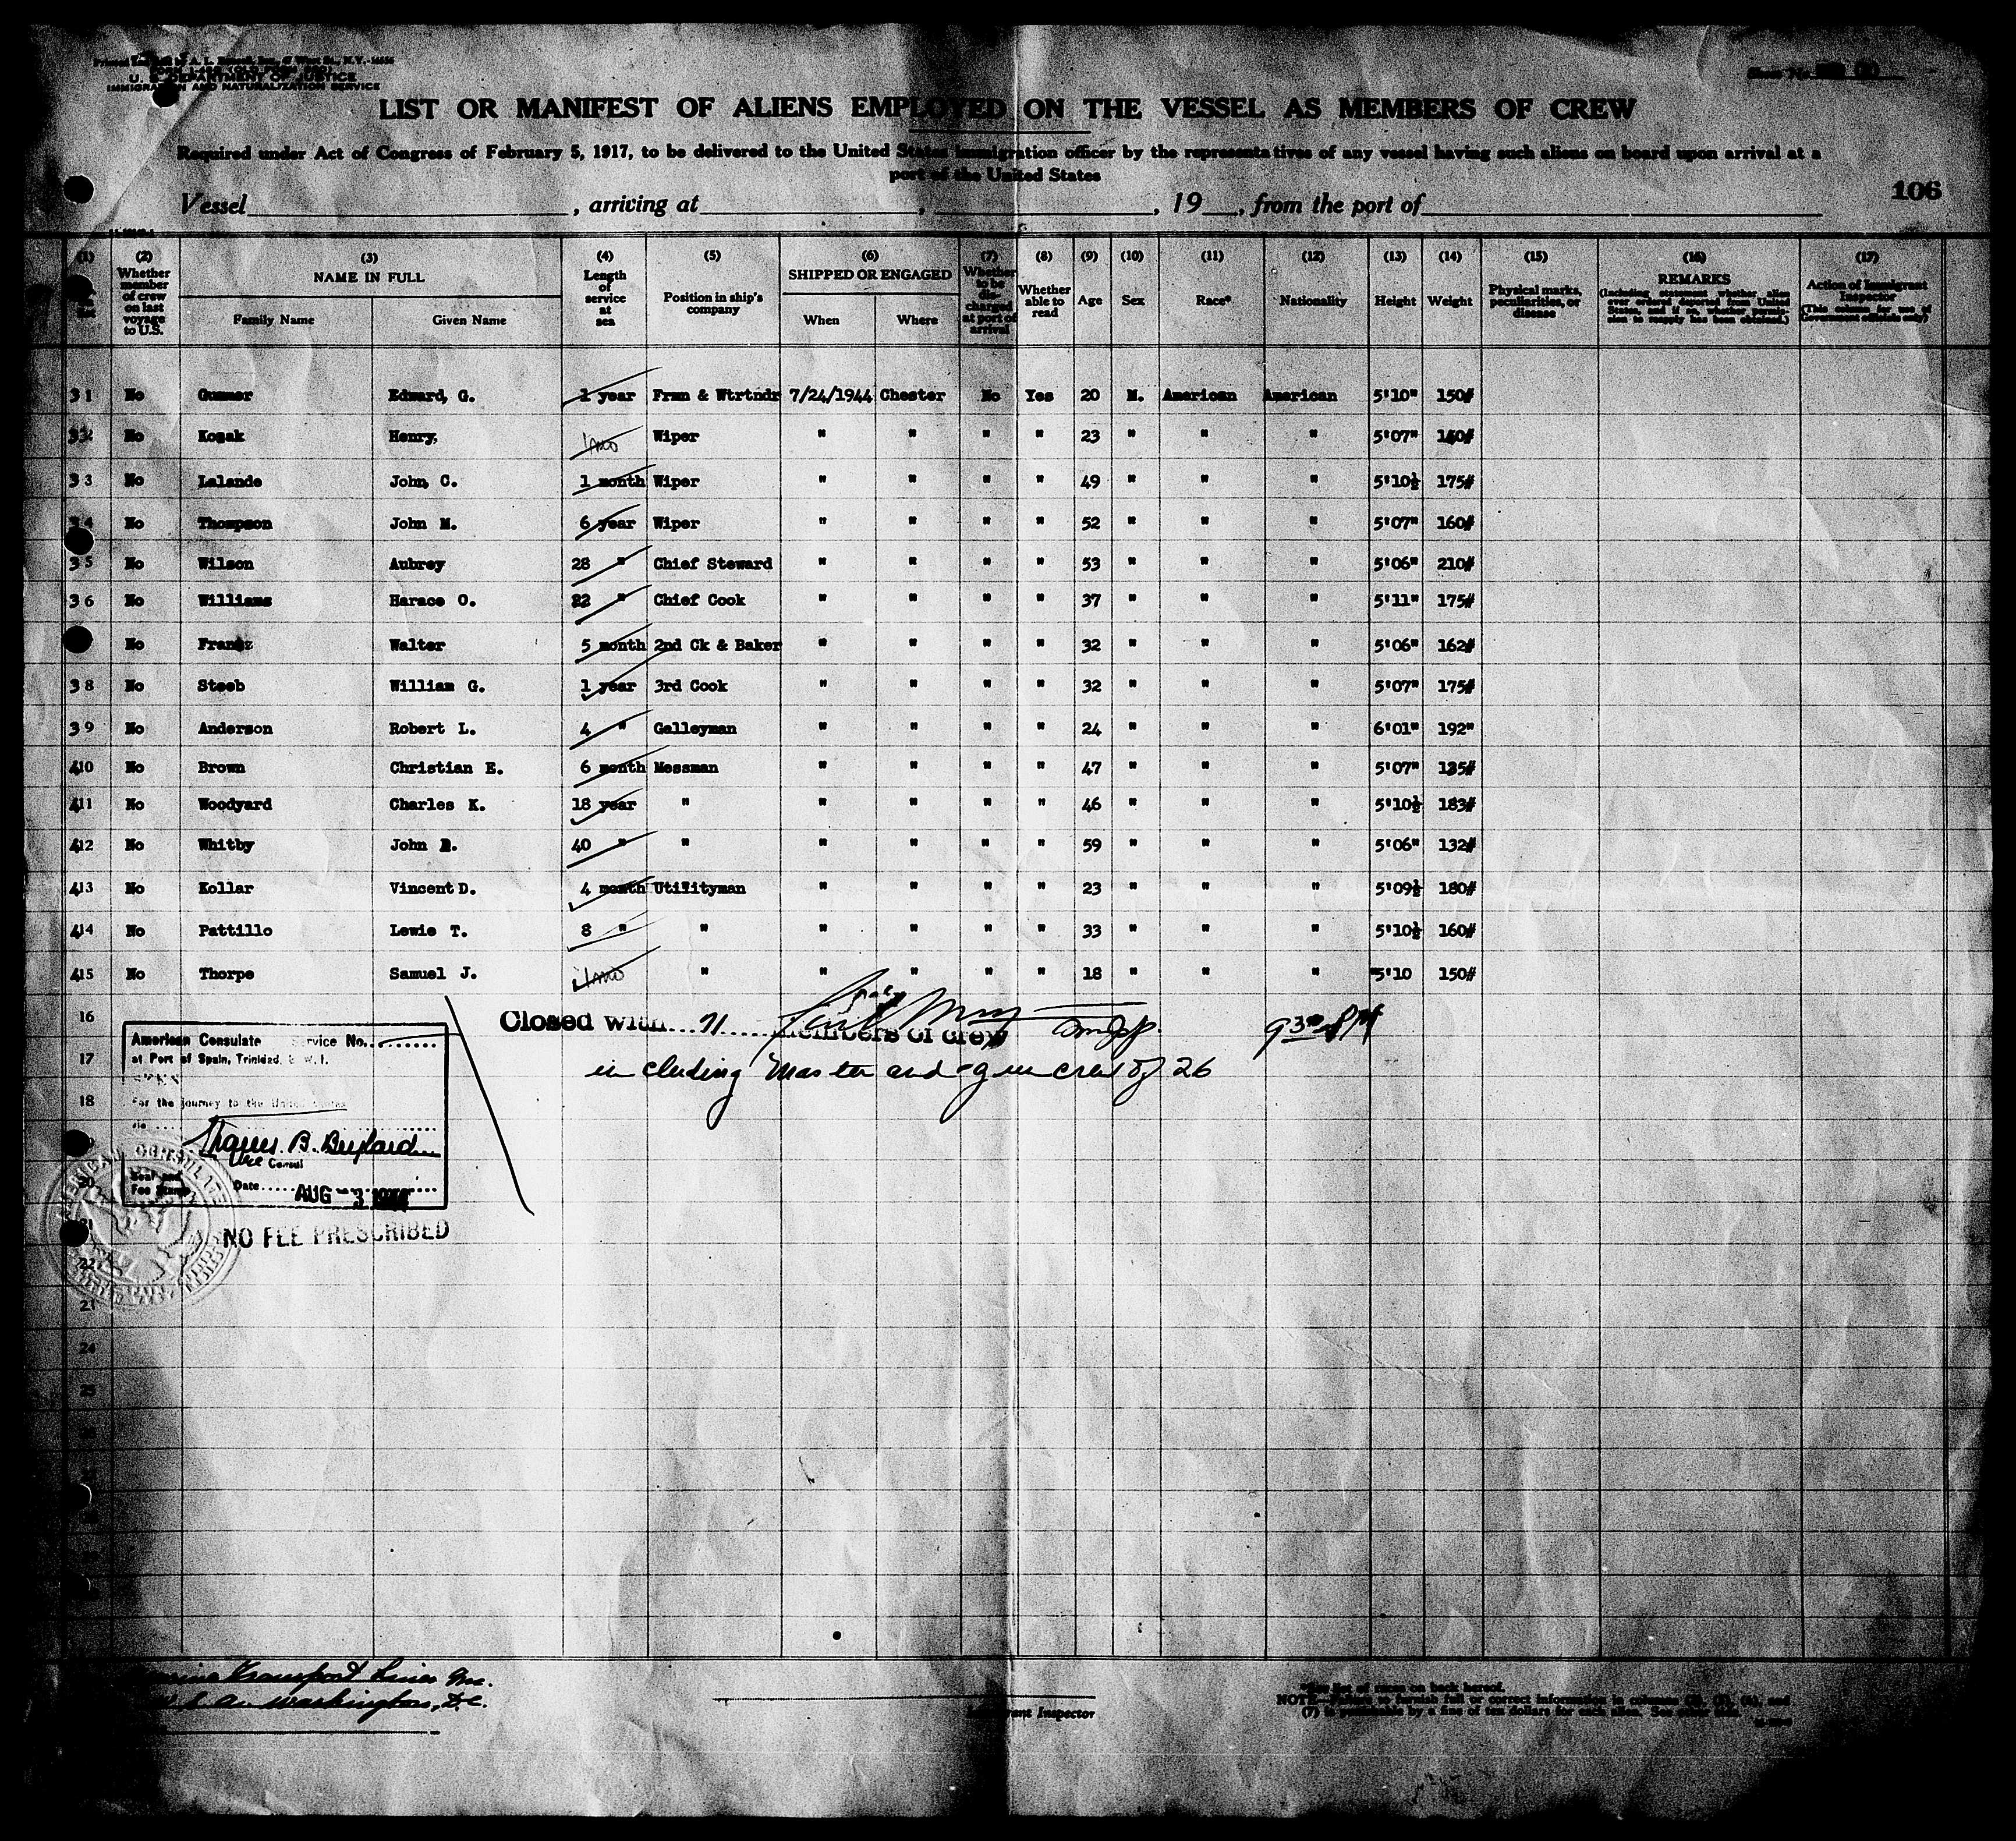 U. S. DEPARTMENT OF JUSTICE
IMMIGRATION AND NATURALIZATION SERVICE
LIST OR MANIFEST OF ALIENS EMPLOYED ON THE VESSEL AS MEMBERS OF CREW
Required under Act of Congress of February 5, 1917, to be delivered to the United States Immigration officer by the representatives of any vessel having such aliens on board upon arrival at a
port of the United States
106
Vessel , arriving at , , 19 , from the port of
(1) (2) (3) (4) (5) (6) (7) (8) (9) (10) (11) (12) (13) (14) (15) (16) (17)
Whether member of crew on last voyage to U.S. NAME IN FULL Family Name Given Name Length of service at sea Position in ship's company SHIPPED OR ENGAGED When Where Whether to be discharged at port of arrival Whether able to read Age Sex Race* Nationality Height Weight Physical marks, peculiarities, or disease REMARKS (Including statement whether alien ever ordered deported from United States, and if so, whether permission to reapply has been obtained.) Action of Immigrant Inspector (This column for use of Government officials only)
31 No Gummer Edward, G. 1 year Frmn & Wtrtndr 7/24/1944 Chester No Yes 20 M. American American 5'10" 150#
32 No Kozak Henry, 1 mo Wiper " " " " 23 " " " 5'07" 140#
33 No Lalande John, C. 1 month Wiper " " " " 49 " " " 5'10½ 175#
34 No Thompson John M. 6 year Wiper " " " " 52 " " " 5'07" 160#
35 No Wilson Aubrey 28 " Chief Steward " " " " 53 " " " 5'06" 210#
36 No Williams Harace O. 22 " Chief Cook " " " " 37 " " " 5'11" 175#
No Frantz Walter 5 month 2nd Ck & Baker " " " " 32 " " " 5'06" 162#
38 No Steeb William G. 1 year 3rd Cook " " " " 32 " " " 5'07" 175#
39 No Anderson Robert L. 4 " Galleyman " " " " 24 " " " 6'01" 192"
410 No Brown Christian E. 6 month Messman " " " " 47 " " " 5'07" 135#
411 No Woodyard Charles K. 18 year " " " " " 46 " " " 5'10½ 183#
412 No Whitby John R. 40 " " " " " " 59 " " " 5'06" 132#
413 No Kollar Vincent D. 4 month Utilityman " " " " 23 " " " 5'09½ 180#
414 No Pattillo Lewis T. 8 " " " " " " 33 " " " 5'10½ 160#
415 No Thorpe Samuel J. 1 mo " " " " " 18 " " " "5'10 150#
16
Closed with... 71 .... members of crew
including Master and gun crew of 26
American Consulate Service No.
17
at Port of Spain, Trinidad, B. W. I.
SEEN
18
For the journey to the United States
Vice Consul
20
Seal and Fee Stamp
Date AUG - 3 1944
21
NO FEE PRESCRIBED
22
23
24
25
Marine Transport Lines Inc.
Washington, D.C.
Immigrant Inspector
*See list of races on back hereof.
NOTE—Failure to furnish full or correct information in columns
(7) is punishable by a fine of ten dollars for each alien. See other side.